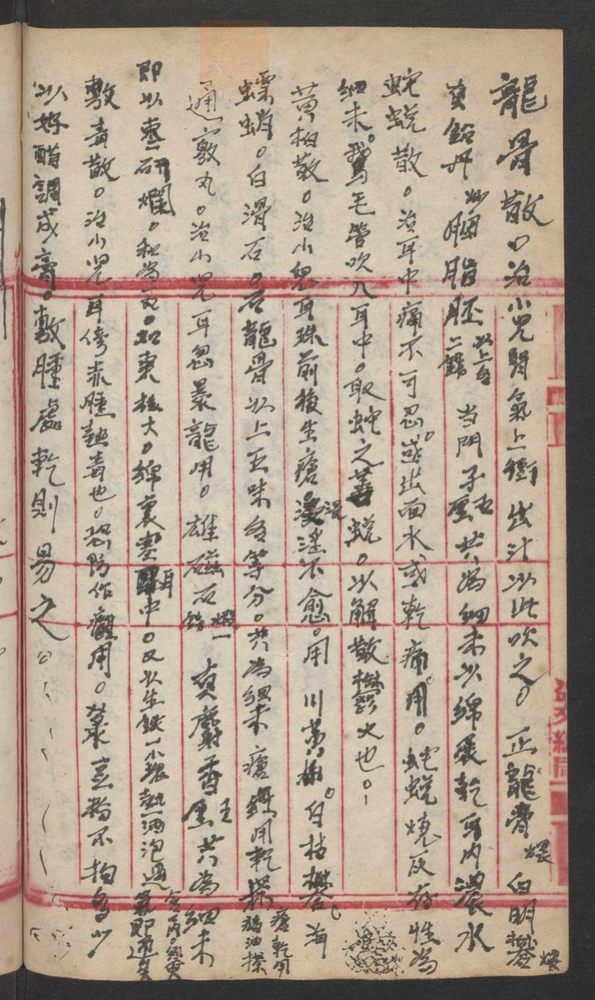 龍骨散。治小児腎氣上衝出汁以此吹之。正龍骨煅 白明礬煅
黃鉛丹炒 胭脂胚以上各二錢 当門子五厘共為細末以綿裹乾耳内濃水
蛇蛻散。治耳中痛不可忍或出血水或乾痛用。蛇蛻燒灰存性為
細末。鵞毛管吹入耳中。取蛇之善蛻。以解散鬱火也。
黄柏散。治小兒耳珠前後生瘡浸淫不愈。用川黄柏。白枯礬。海
螵蛸。白滑石。石龍骨以上五味各等分。共為細末瘡濕用乾摻瘡乾用猪油搽
通竅丸。治小児耳忽暴聾用。雄磁石煅一錢 真麝香五厘共為細末
即以棗研爛。和為丸。如棗核大。綿裹塞耳中。又以生鉄一小塊熱酒泡過
敷毒散。治小児耳傍赤腫熱毒也。恐防作癰用。菉豆粉不拘多少
以好醋調成膏。敷腫處乾則易之。